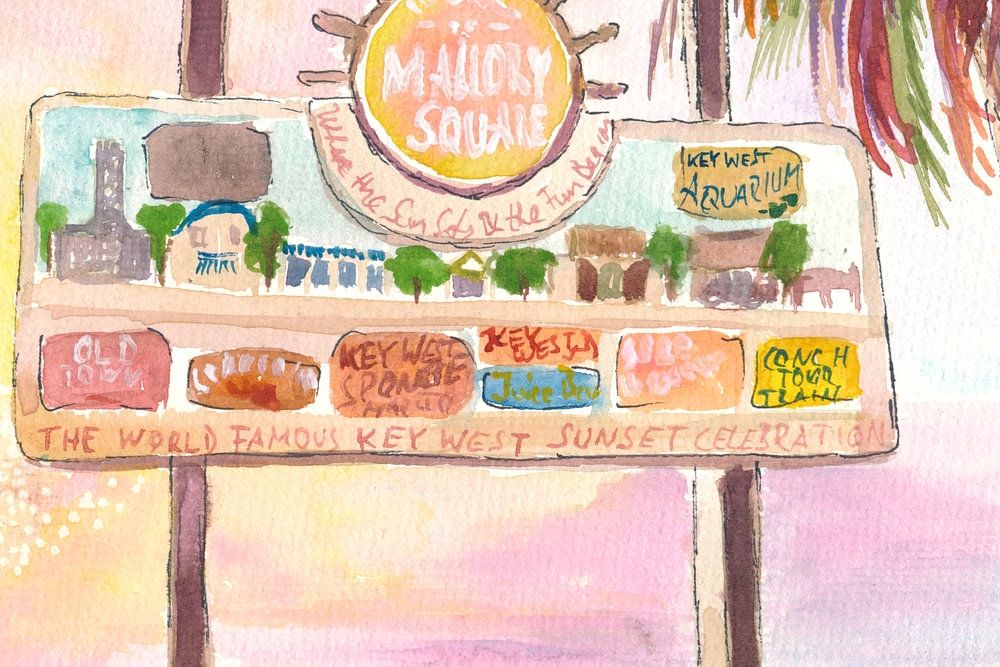 MALLORY
SQUARE
Where the Sun Sets & the Fun Begins
KEY WEST
AQUARIUM
OLD
TOWN
KEY WEST
SPONGE
KEY
WEST
CONCH
TOUR
TRAIN
THE WORLD FAMOUS KEY WEST SUNSET CELEBRATION